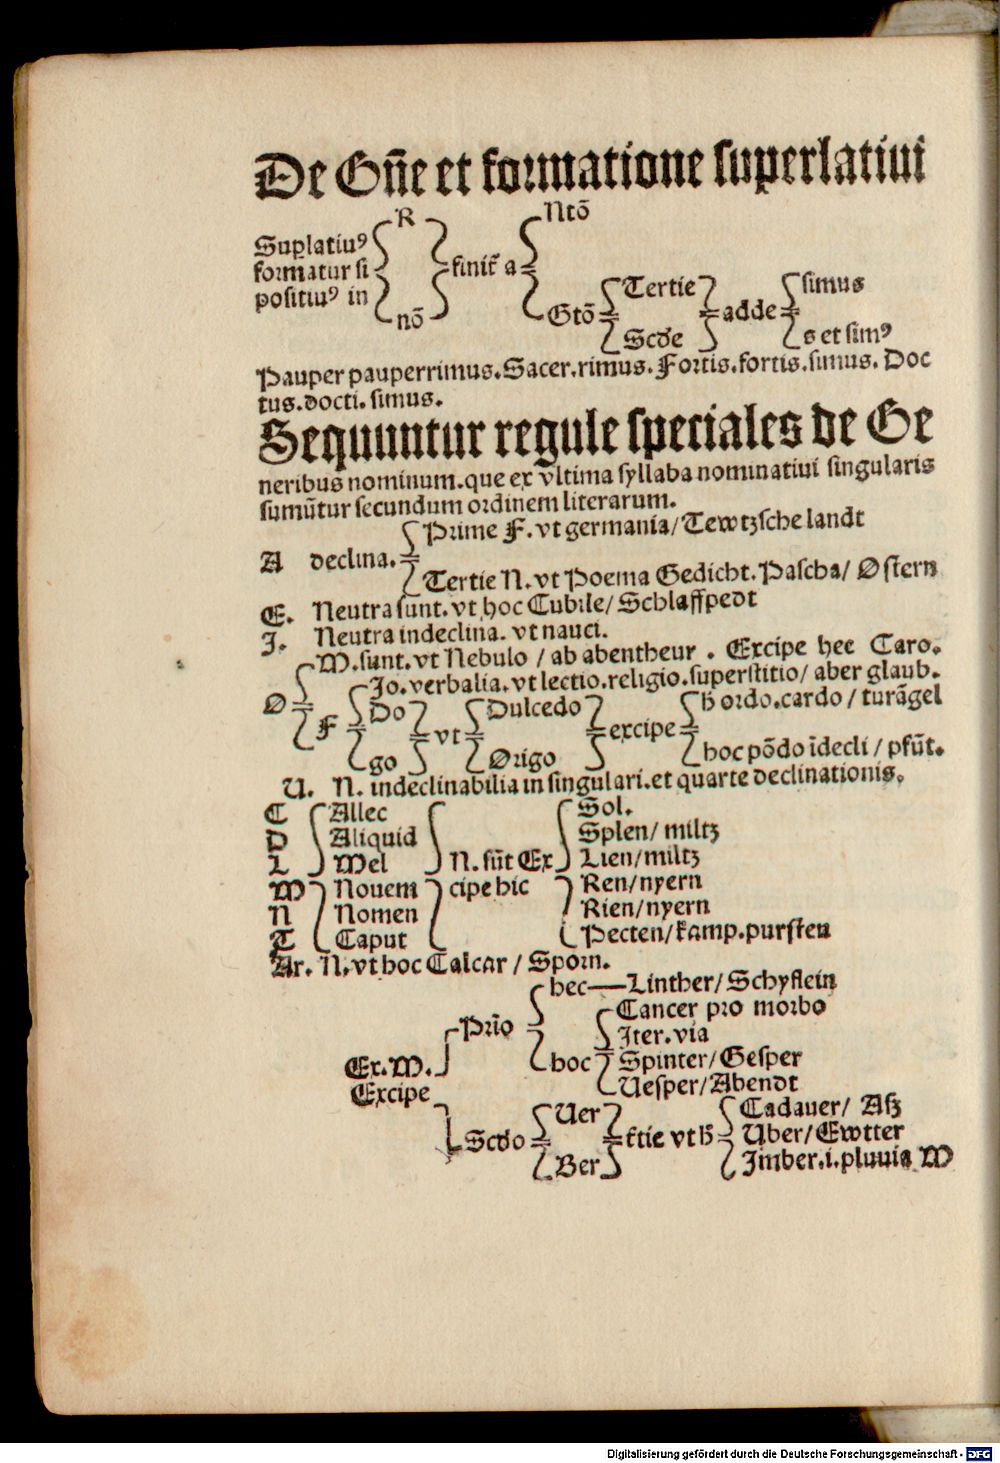 De Gñe et formatione superlatiui
R Ntõ
Suꝑlatiuꝰ
formatur si finit̃ a
positiuꝰ in Tertie simus
nõ Gtõ adde
Scḋe s et simꝰ
Pauper pauperrimus. Sacer. rimus. Fortis. fortis. simus. Doc
tus. docti. simus.
Sequuntur regule speciales de Ge
neribus nominum. que ex vltima syllaba nominatiui singularis
sumũtur secundum ordinem literarum.
Prime F. vt germania/ Tewtzsche landt
A declina.
Tertie N. vt Poema Gedicht. Pascha/ Ostern
E. Neutra sunt. vt hoc Cubile/ Schlaffpedt
J. Neutra indeclina. vt nauci.
M. sunt. vt Nebulo / ab abentheur . Excipe hec Caro.
Jo. verbalia. vt lectio. religio. superstitio/ aber glaub.
O F Do Dulcedo h ordo. cardo / turãgel
vt excipe
go Origo hoc põdo ĩdecli / pfũt.
U. N. indeclinabilia in singulari. et quarte declinationis.
C Allec Sol.
D Aliquid Splen/ miltz
L Mel N. sũt Ex Lien/ miltz
M Nouem cipe hic Ren/ nyern
N Nomen Rien/ nyern
T Caput Pecten/ kamp. pursten
Ar. N. vt hoc Calcar / Sporn.
hec Linther/ Schyflein
Cancer pro morbo
Prĩo Iter. via
Er. M. hoc Spinter/ Gesper
Excipe Uesper/ Abendt
Uer Cadauer/ Asz
Scḋo t̃tie vt h̃ Uber/ Ewtter
Ber Jmber. i. pluuia M
Digitalisierung gefördert durch die Deutsche Forschungsgemeinschaft - DFG